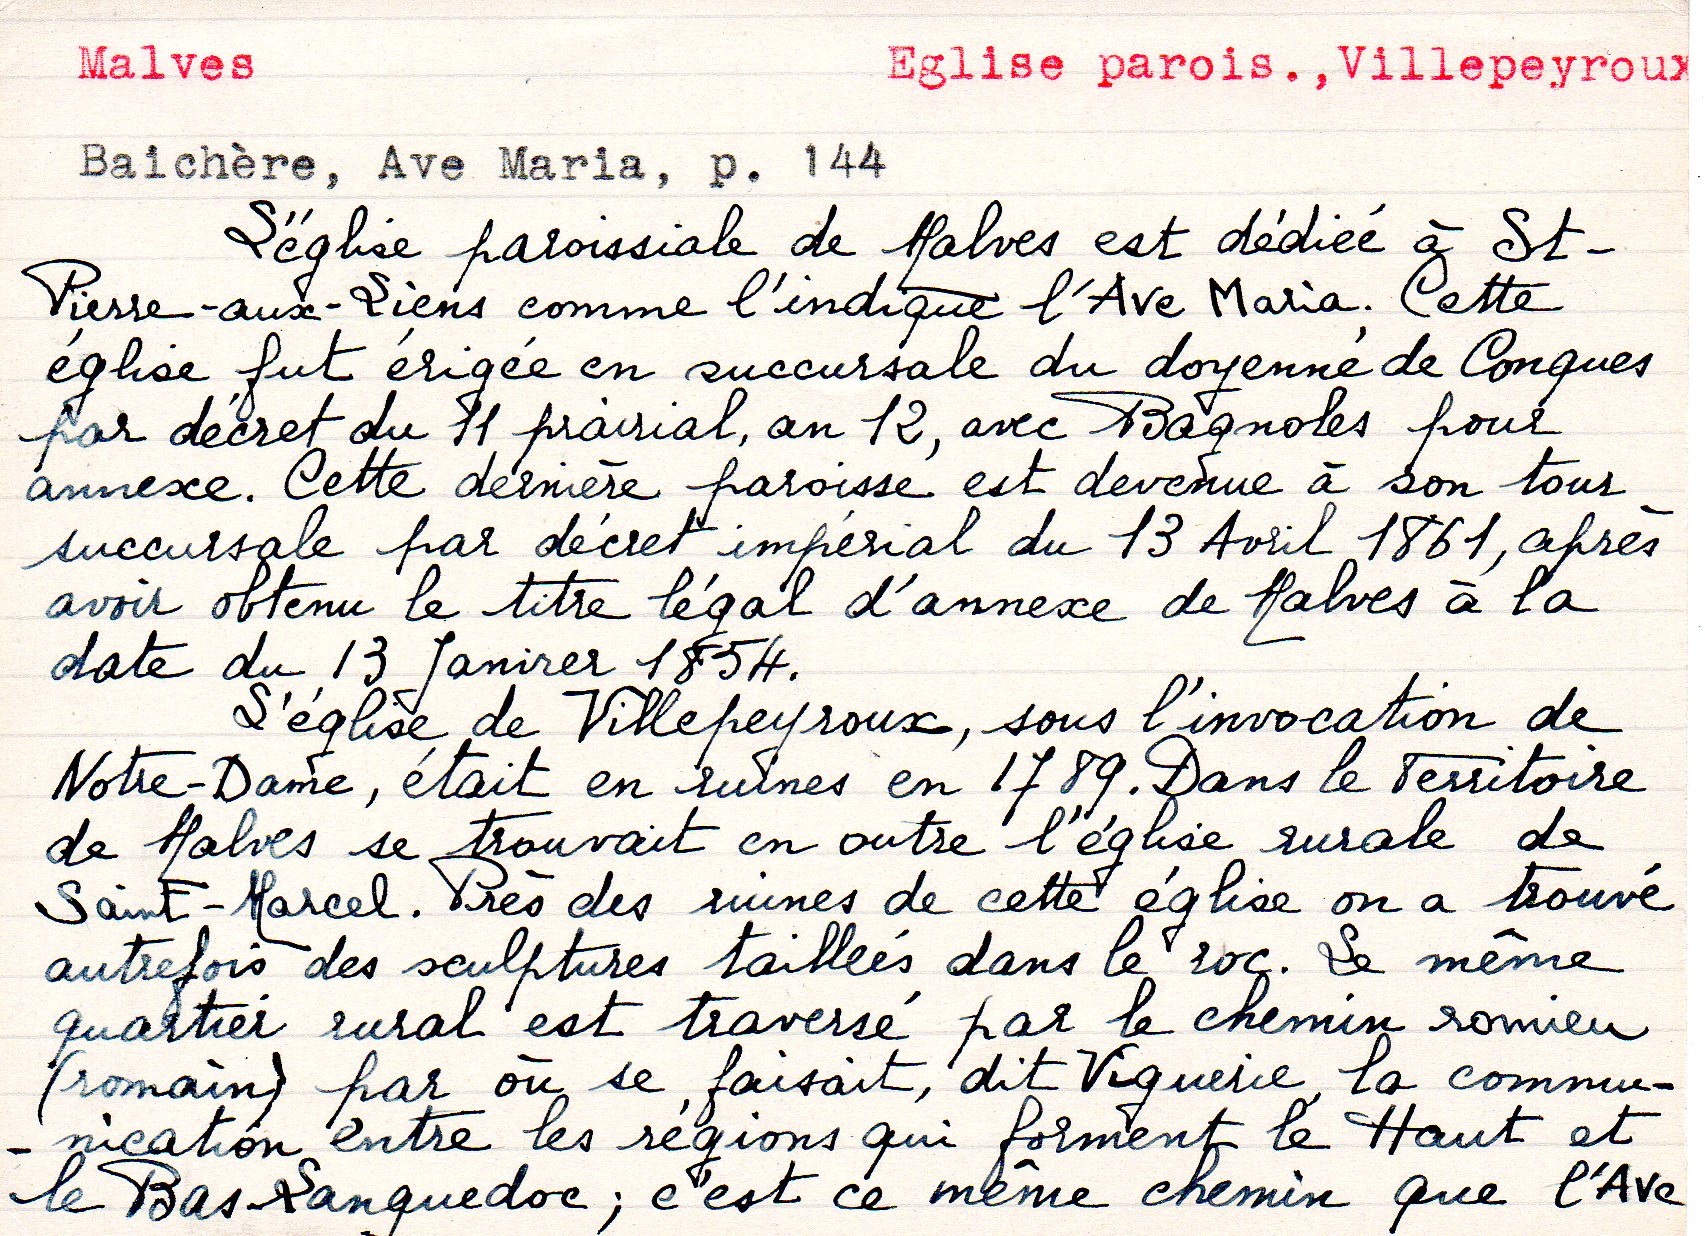 Malves Eglise parois.,Villepeyroux
Baichère, Ave Maria, p. 144
L'église paroissiale de Malves est dédiée à St-
Pierre-aux-Liens comme l'indique l'Ave Maria. Cette
église fut érigée en succursale du doyenné de Conques
par décret du 11 prairial, an 12, avec Bagnoles pour
annexe. Cette dernière paroisse est devenue à son tour
succursale par décret impérial du 13 Avril 1861, après
avoir obtenu le titre légal d'annexe de Malves à la
date du 13 Janvier 1854.
L'église de Villepeyroux, sous l'invocation de
Notre-Dame, était en ruines en 1789. Dans le territoire
de Malves se trouvait en outre l'église rurale de
Saint-Marcel. Près des ruines de cette église on a trouvé
autrefois des sculptures taillées dans le roc. Le même
quartier rural est traversé par le chemin romieu
(romain) par où se faisait, dit Viguerie, la commu-
-nication entre les régions qui forment le Haut et
le Bas-Languedoc; c'est ce même chemin que l'Ave